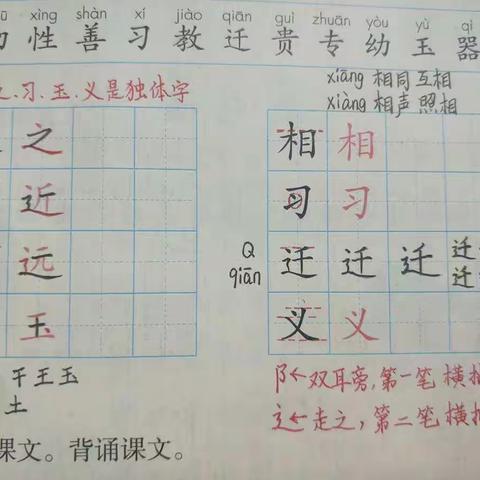 xìng shàn xí jiào qiān guì zhuān yòu yù qì
性 善 习 教 迁 贵 专 幼 玉 器
习.玉.义是独体字
xiāng 相同 互相
xiàng 相声 照相
之
近
远
玉
相 相
习 习
Q
qiān
迁 迁 迁 迁
迁
义 义
干王玉
土
阝←双耳旁,第一笔 横
辶←走之,第二笔 横
课文。背诵课文。